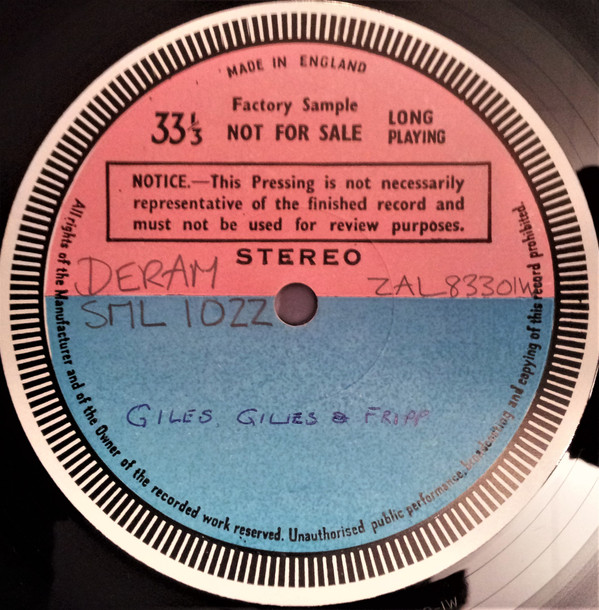 MADE IN ENGLAND
Factory Sample
33⅓ NOT FOR SALE LONG PLAYING
NOTICE.—This Pressing is not necessarily
representative of the finished record and
must not be used for review purposes.
STEREO
DERAM ZAL83301W
SML 1022
GILES GILES & FRIPP
All rights of the Manufacturer and of the Owner of the recorded work reserved. Unauthorised public performance, broadcasting and copying of this record prohibited.
-1W